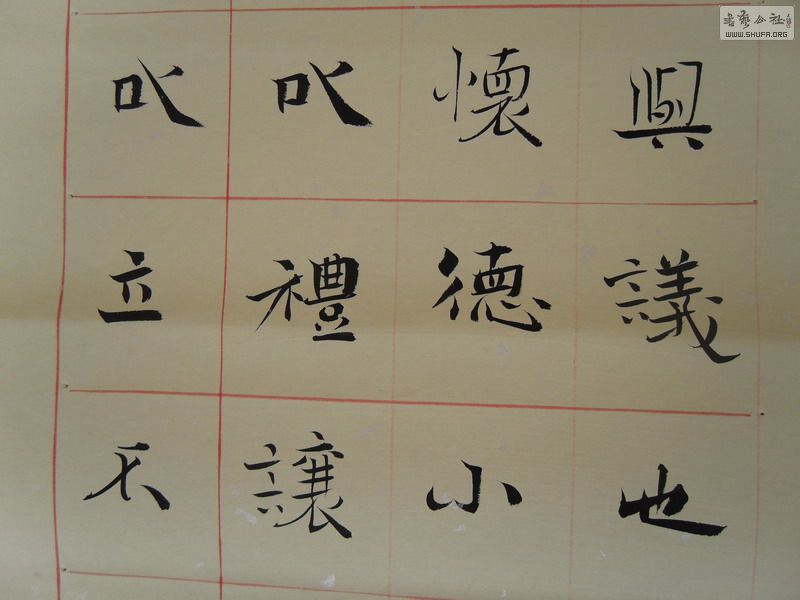 與議也
懷德小
以禮讓
以立不
書藝公社
WWW.SHUFA.ORG